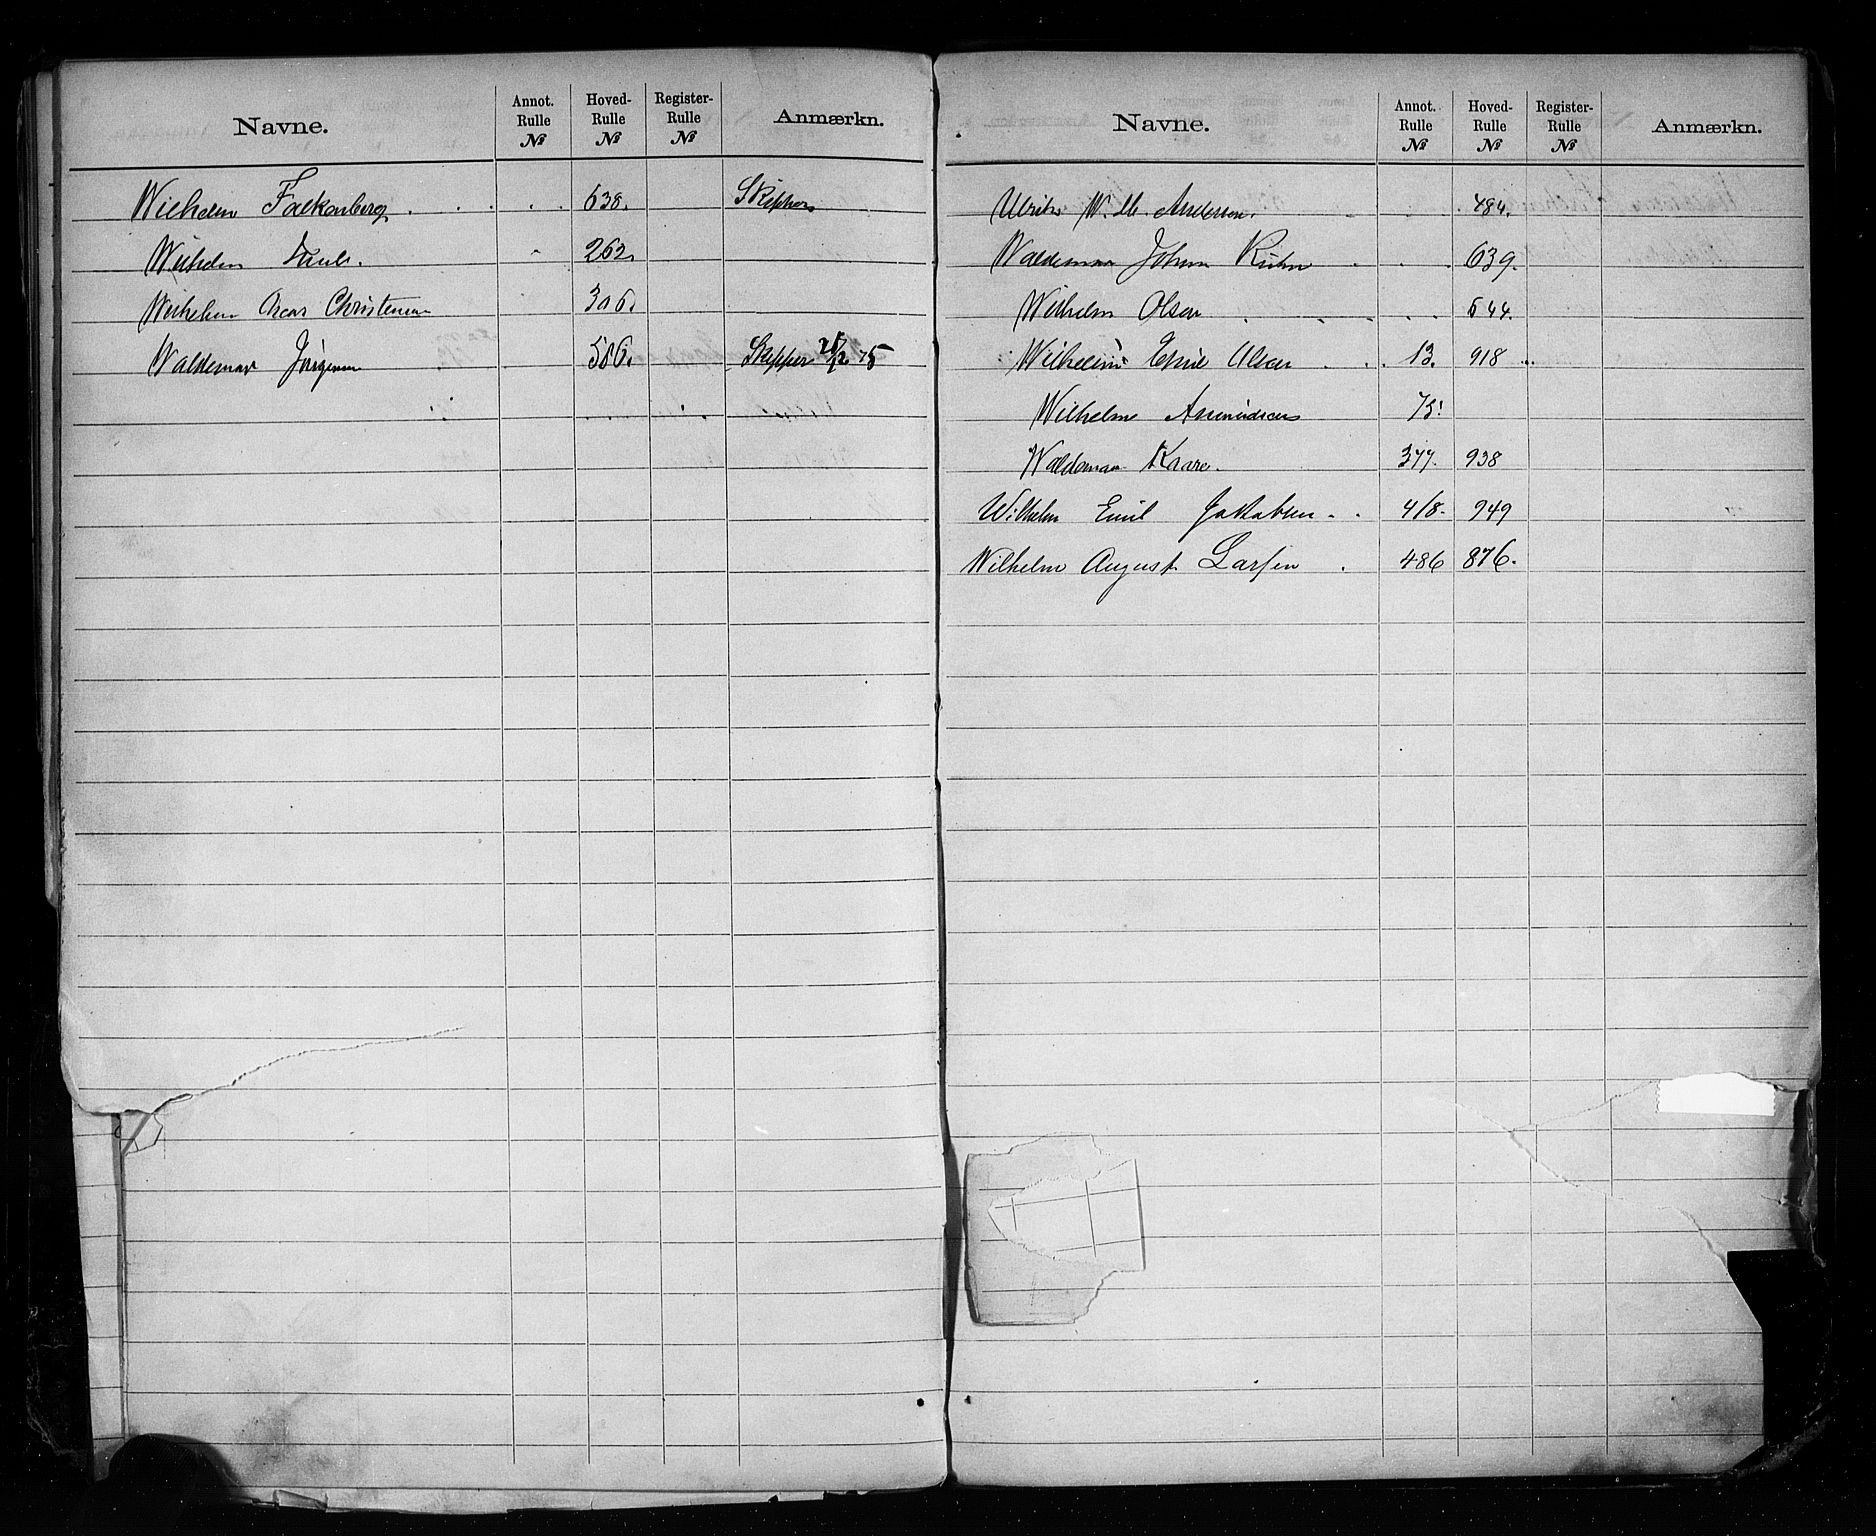 Navne. Annot. Rulle № Hoved-Rulle № Register-Rulle № Anmærkn.
Wilhelm Falkenberg 638. Skipper
Wilhelm 262.
Wilhelm Oscar Christensen 306.
Waldemar Jørgensen 586. Skipper 75
Navne. Annot. Rulle № Hoved-Rulle № Register-Rulle № Anmærkn.
Ulrik W. M. Andersen. 484.
Waldemar Johan 639.
Wilhelm Olsen 644.
Wilhelm Emil Olsen 13. 918
Wilhelm Amundsen 75.
Waldemar Kaare. 377. 938
Wilhelm Emil Jakobsen 418. 949
Wilhelm August Larsen 486 876.